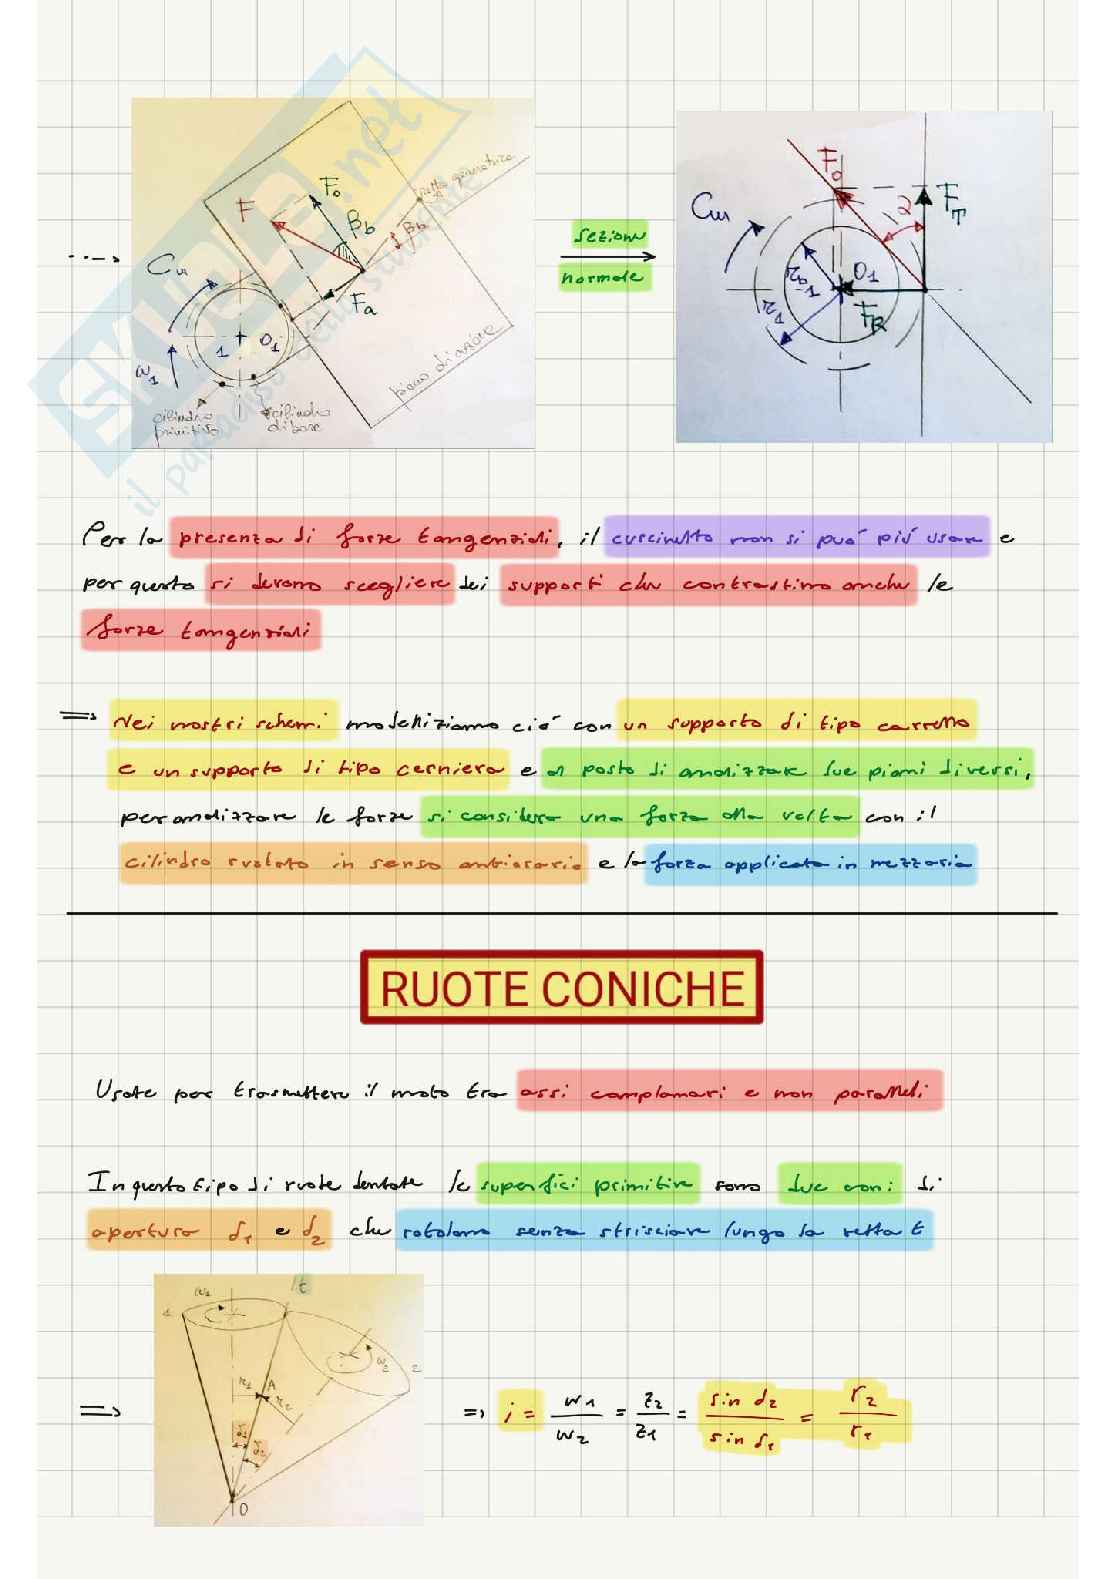 SKUOLA.net
il paradiso dello studente
F
F₀
βb
βb
retta generatrice
Cm
Fa
1
O₁
ω₁
piano di azione
cilindro primitivo
cilindro di base
sezione
normale
F₀
Cm
α
F_T
O₁
F_R
Per la presenza di forze tangenziali, il cuscinetto non si può più usare e
per questo si devono scegliere dei supporti che contrastino anche le
forze tangenziali
=> Nei nostri schemi modelliziamo ciò con un supporto di tipo carrello
e un supporto di tipo cerniera e al posto di analizzare due piani diversi,
per analizzare le forze si considera una forza alla volta con il
cilindro ruotato in senso antiorario e la forza applicata in mezzaria
RUOTE CONICHE
Usate per trasmettere il moto tra assi complanari e non paralleli
In questo tipo di ruote dentate le superfici primitive sono due coni di
apertura δ₁ e δ₂ che rotolano senza strisciare lungo la retta t
t
1
ω₁
ω₂
2
r₁
A
r₂
δ₁
δ₂
O
=> i = ω₁/ω₂ = z₂/z₁ = sin δ₂/sin δ₁ = r₂/r₁